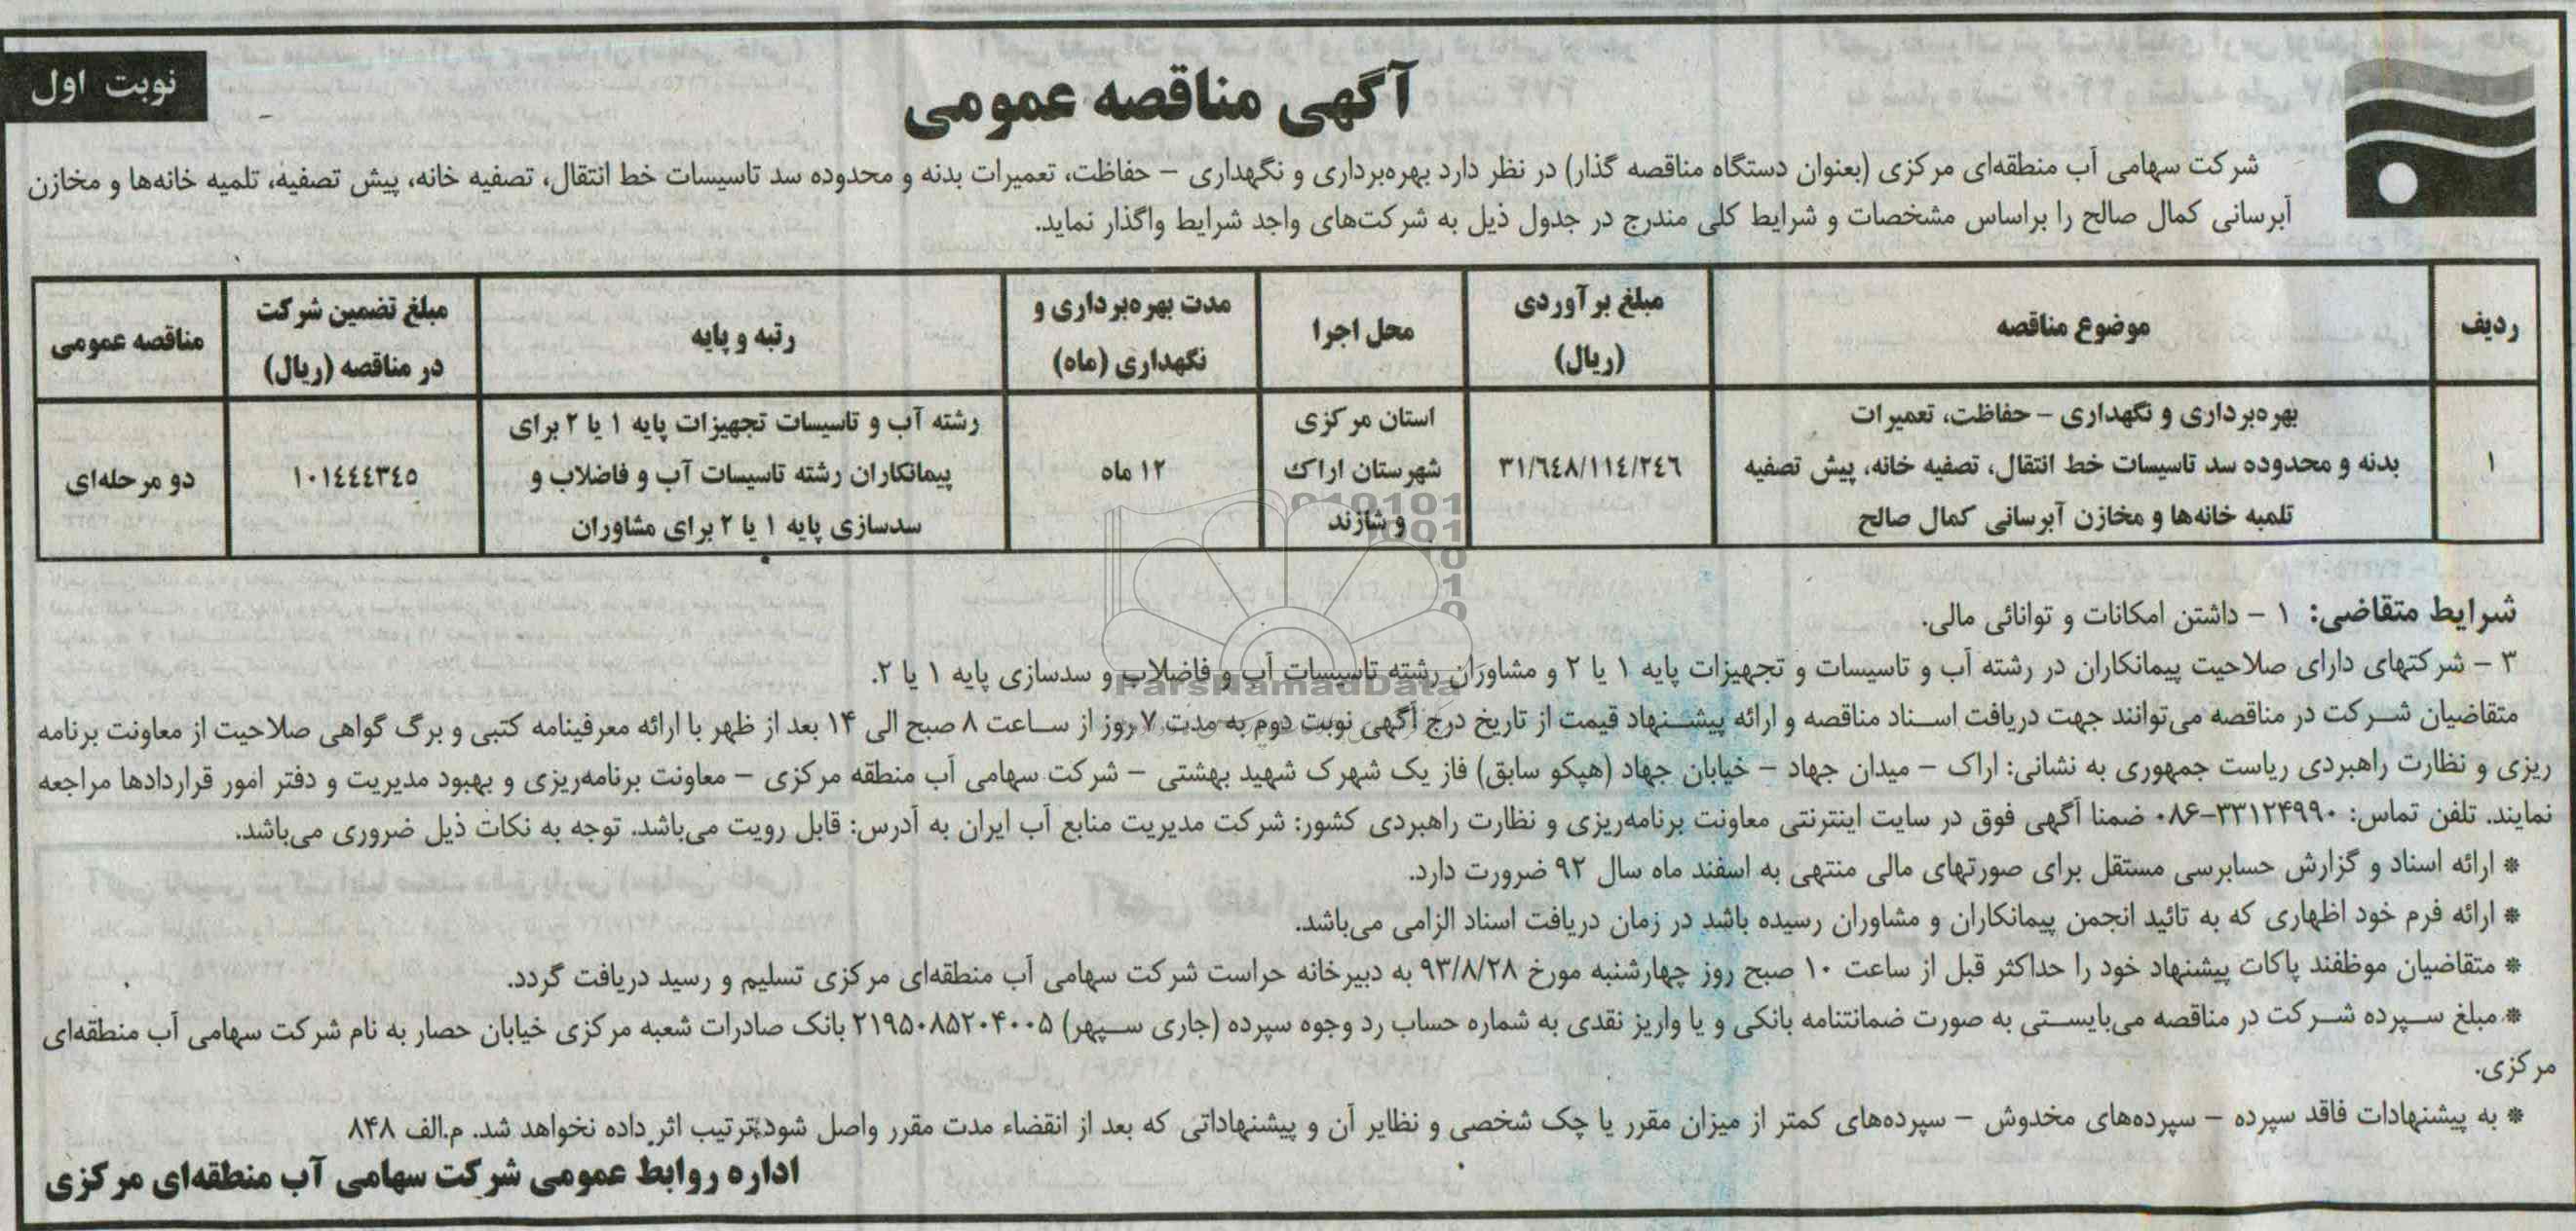 نوبت اول
آگهی مناقصه عمومی
شرکت سهامی آب منطقه‌ای مرکزی (بعنوان دستگاه مناقصه گذار) در نظر دارد بهره‌برداری و نگهداری – حفاظت، تعمیرات بدنه و محدوده سد تاسیسات خط انتقال، تصفیه خانه، پیش تصفیه، تلمیه خانه‌ها و مخازن
آبرسانی کمال صالح را براساس مشخصات و شرایط کلی مندرج در جدول ذیل به شرکت‌های واجد شرایط واگذار نماید.
ردیف
موضوع مناقصه
مبلغ برآوردی
(ریال)
محل اجرا
مدت بهره‌برداری و
نگهداری (ماه)
رتبه و پایه
مبلغ تضمین شرکت
در مناقصه (ریال)
مناقصه عمومی
۱
بهره‌برداری و نگهداری – حفاظت، تعمیرات
بدنه و محدوده سد تاسیسات خط انتقال، تصفیه خانه، پیش تصفیه
تلمبه خانه‌ها و مخازن آبرسانی کمال صالح
۳۱/٦٤٨/۱۱٤/۲٤٦
استان مرکزی
شهرستان اراک
و شازند
۱۲ ماه
رشته آب و تاسیسات تجهیزات پایه ۱ یا ۲ برای
پیمانکاران رشته تاسیسات آب و فاضلاب و
سدسازی پایه ۱ یا ۲ برای مشاوران
۱۰۱٤٤٤۳٤٥
دو مرحله‌ای
شرایط متقاضی: ۱ – داشتن امکانات و توانائی مالی.
۳ – شرکتهای دارای صلاحیت پیمانکاران در رشته آب و تاسیسات و تجهیزات پایه ۱ یا ۲ و مشاوران رشته تاسیسات آب و فاضلاب و سدسازی پایه ۱ یا ۲.
متقاضیان شرکت در مناقصه می‌توانند جهت دریافت اسناد مناقصه و ارائه پیشنهاد قیمت از تاریخ درج آگهی نوبت دوم به مدت ۷ روز از ساعت ۸ صبح الی ۱۴ بعد از ظهر با ارائه معرفینامه کتبی و برگ گواهی صلاحیت از معاونت برنامه
ریزی و نظارت راهبردی ریاست جمهوری به نشانی: اراک – میدان جهاد – خیابان جهاد (هپکو سابق) فاز یک شهرک شهید بهشتی – شرکت سهامی آب منطقه مرکزی – معاونت برنامه‌ریزی و بهبود مدیریت و دفتر امور قراردادها مراجعه
نمایند. تلفن تماس: ۳۳۱۲۴۹۹۰-۰۸۶ ضمنا آگهی فوق در سایت اینترنتی معاونت برنامه‌ریزی و نظارت راهبردی کشور: شرکت مدیریت منابع آب ایران به آدرس: قابل رویت می‌باشد. توجه به نکات ذیل ضروری می‌باشد.
* ارائه اسناد و گزارش حسابرسی مستقل برای صورتهای مالی منتهی به اسفند ماه سال ۹۲ ضرورت دارد.
* ارائه فرم خود اظهاری که به تائید انجمن پیمانکاران و مشاوران رسیده باشد در زمان دریافت اسناد الزامی می‌باشد.
* متقاضیان موظفند پاکات پیشنهاد خود را حداکثر قبل از ساعت ۱۰ صبح روز چهارشنبه مورخ ۹۳/۸/۲۸ به دبیرخانه حراست شرکت سهامی آب منطقه‌ای مرکزی تسلیم و رسید دریافت گردد.
* مبلغ سپرده شرکت در مناقصه می‌بایستی به صورت ضمانتنامه بانکی و یا واریز نقدی به شماره حساب رد وجوه سپرده (جاری سپهر) ۲۱۹۵۰۸۵۲۰۴۰۰۵ بانک صادرات شعبه مرکزی خیابان حصار به نام شرکت سهامی آب منطقه‌ای
مرکزی.
* به پیشنهادات فاقد سپرده – سپرده‌های مخدوش – سپرده‌های کمتر از میزان مقرر یا چک شخصی و نظایر آن و پیشنهاداتی که بعد از انقضاء مدت مقرر واصل شود ترتیب اثر داده نخواهد شد. م.الف ۸۴۸
اداره روابط عمومی شرکت سهامی آب منطقه‌ای مرکزی
ParsNamadData